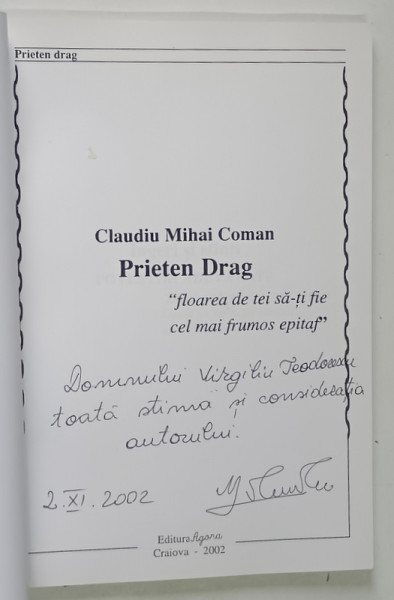 Prieten drag
Claudiu Mihai Coman
Prieten Drag
“floarea de tei să-ți fie
cel mai frumos epitaf”
Domnului Virgiliu Teodorescu
toată stima și considerația
autorului.
2.XI.2002
Editura Agora
Craiova - 2002